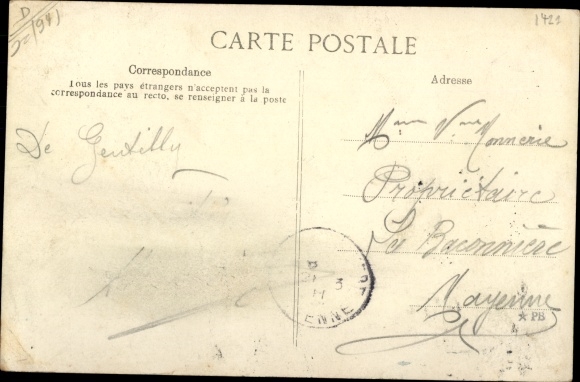 1422
CARTE POSTALE
Correspondance
Tous les pays étrangers n'acceptent pas la
correspondance au recto, se renseigner à la poste
De Gentilly
Adresse
Mme Vve Monnerie
Propriétaire
La Baconnière
Mayenne
ENNE
★ PB